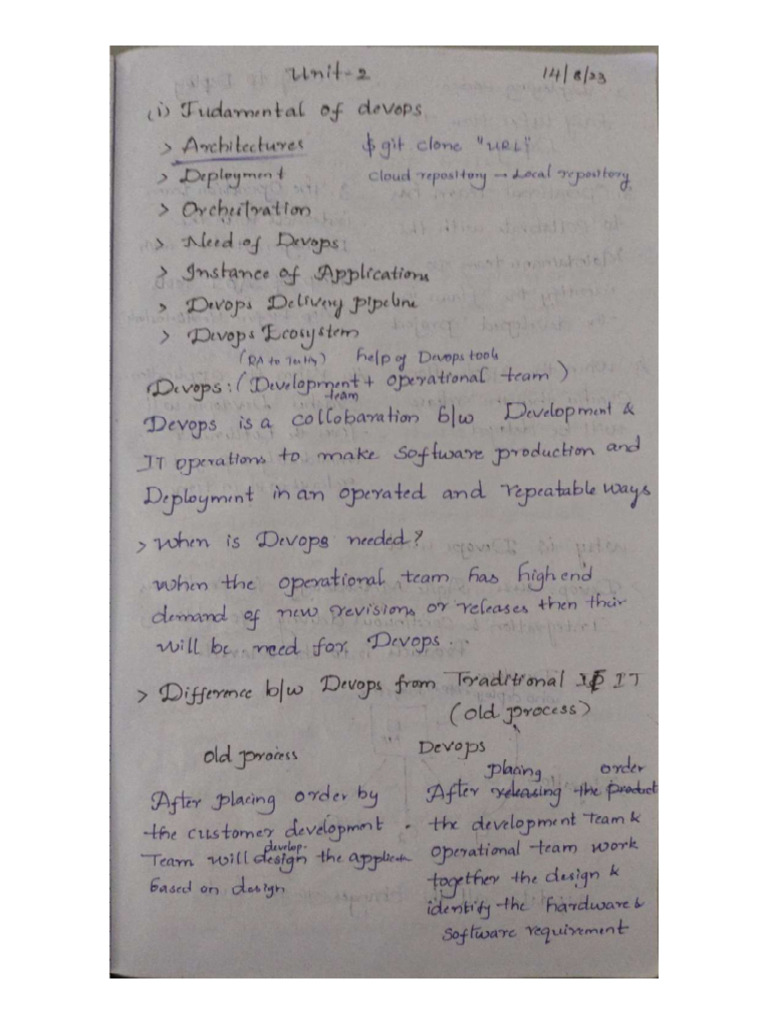 Unit-2 14/8/23
(i) Fudamental of devops
> Architectures $ git clone "URL"
> Deployment cloud repository → Local repository
> Orchestration
> Need of Devops
> Instance of Applications
> Devops Delivery pipeline
> Devops Ecosystem
(RA to Testing) help of Devops tools
Devops: (Development + operational team)
team
Devops is a collobaration b/w Development &
IT operations to make software production and
Deployment in an operated and repeatable ways
> When is Devops needed?
When the operational team has high end
demand of new revisions or releases then their
will be need for Devops.
> Difference b/w Devops from Traditional IT
(old process)
old process
After placing order by
the customer development
develop
Team will design the applicatn
based on design
Devops
placing order
After releasing the product
the development team &
operational team work
together the design &
identify the hardware &
software requirement